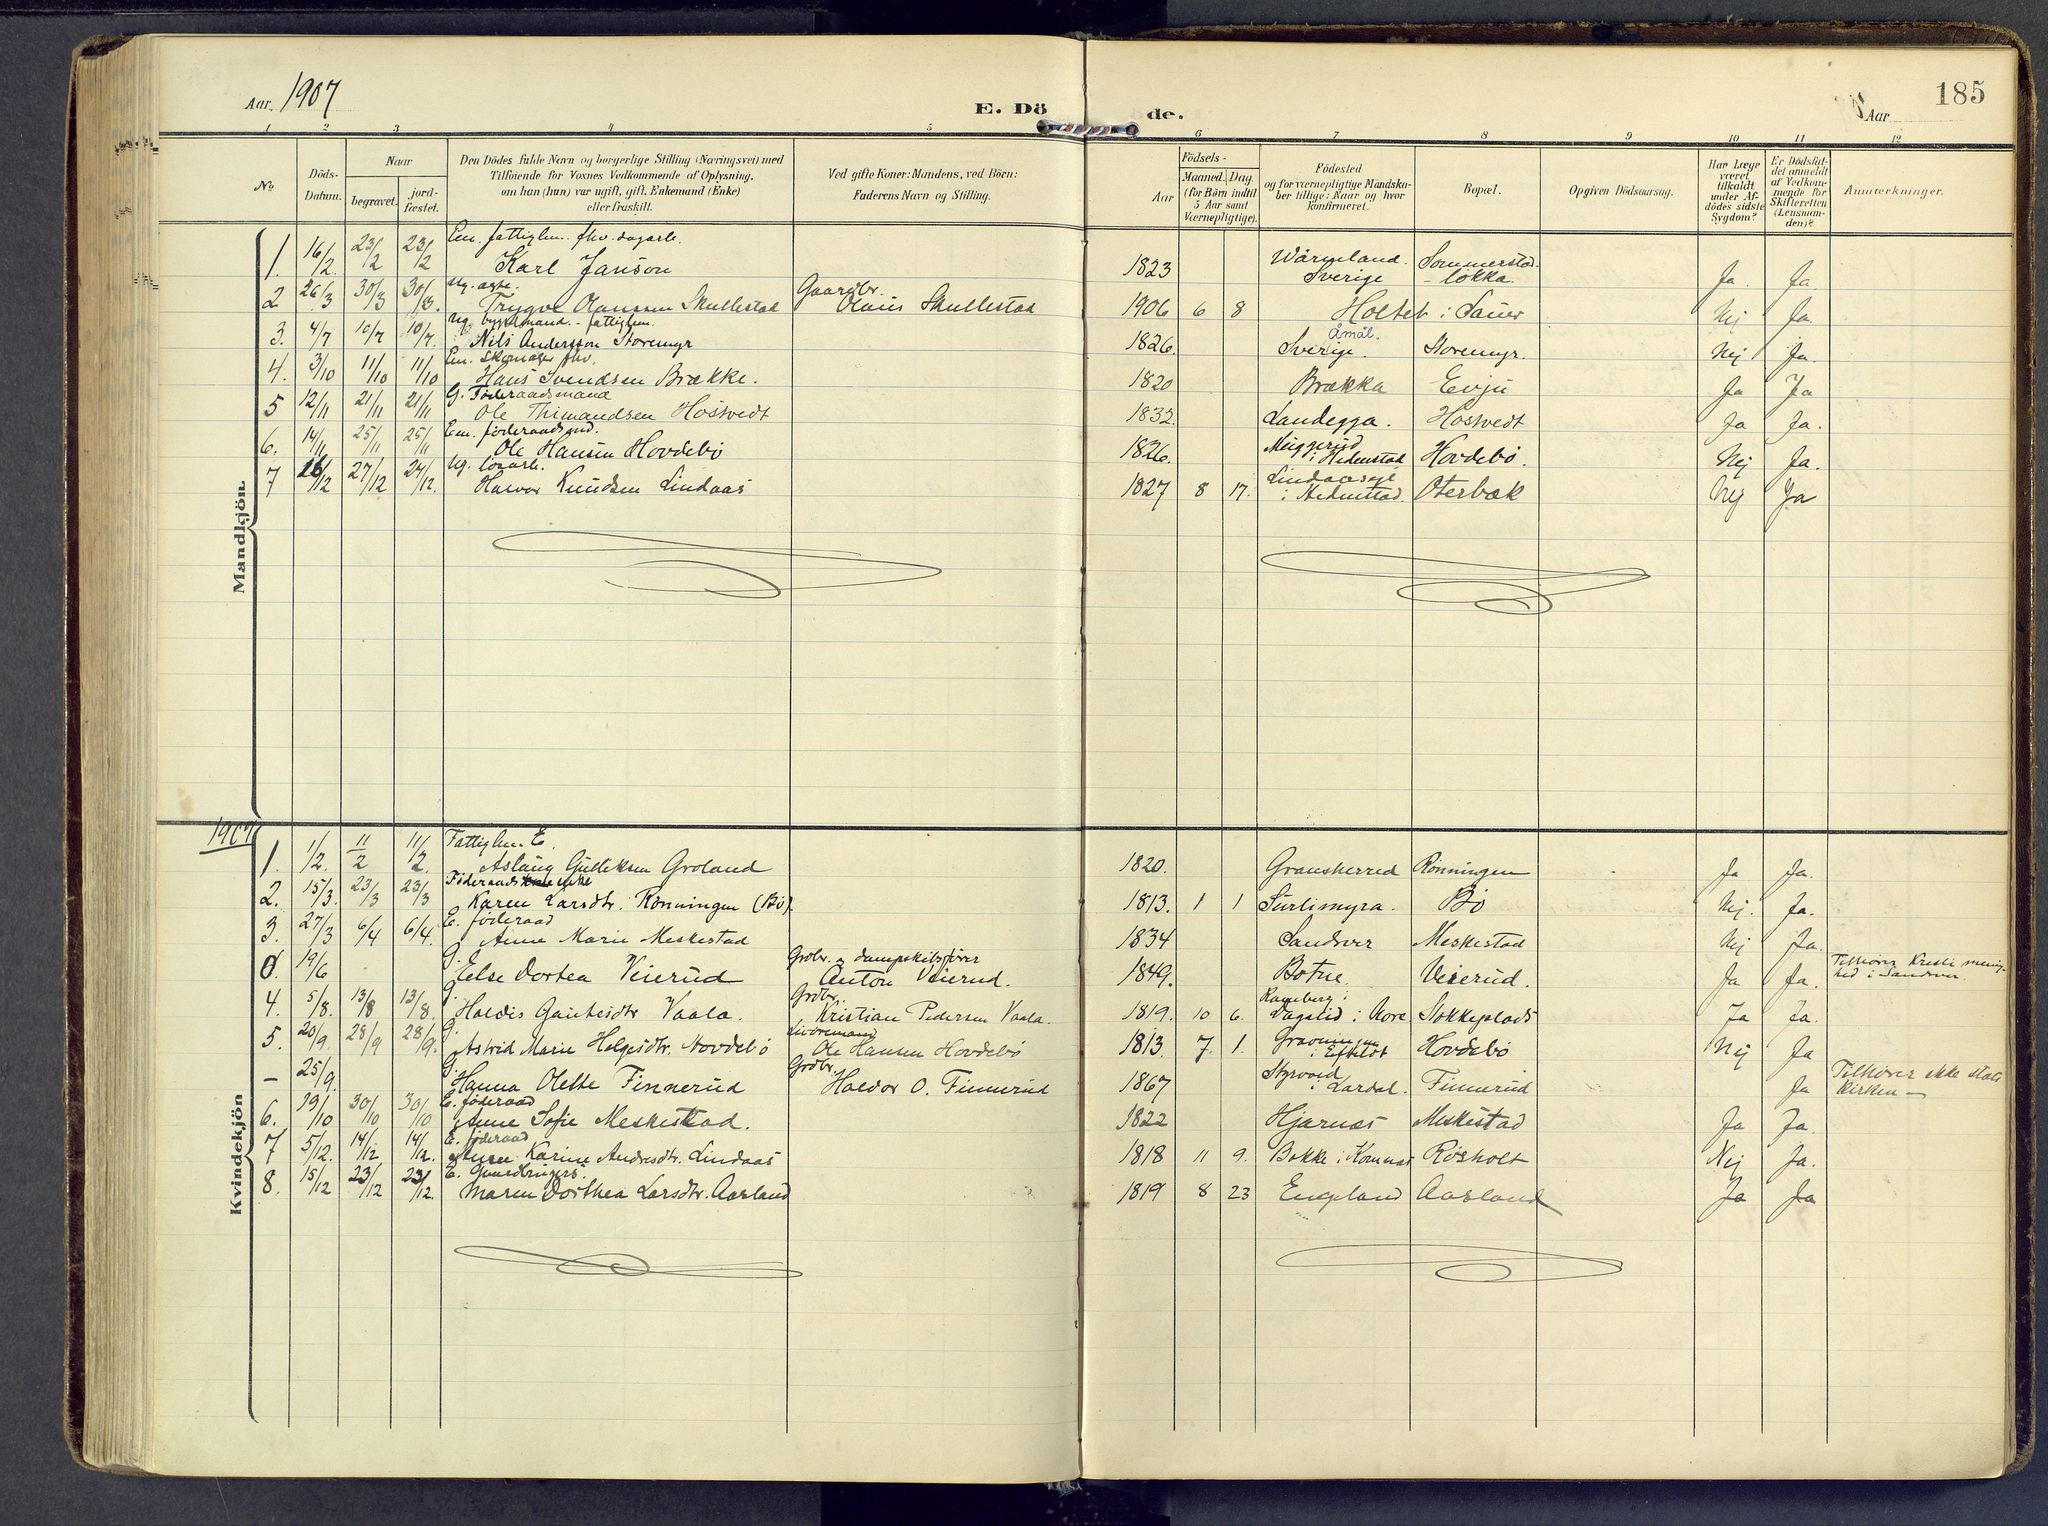 Aar. 1907
E. Dö
de.
185
Aar
1 2 3 4 5 6 7 8 9 10 11 12
No.
Döds-Datum.
Naar
begravet.
jord-fæstet.
Den Dödes fulde Navn og borgerlige Stilling (Næringsvei) med
Tilföiende for Voxnes Vedkommende af Oplysning,
om han (hun) var ugift, gift, Enkemand (Enke)
eller fraskilt.
Ved gifte Koner: Mandens, ved Börn:
Faderens Navn og Stilling.
Födsels-
Aar
Maaned. Dag.
(for Börn indtil
5 Aar samt
Værnepligtige).
Födested
og for værnepligtige Mandska-
ber tillige: Naar og hvor
konfirmeret.
Bopæl.
Opgiven Dödsaarsag.
Har Læge
været
tilkaldt
under Af-
dödes sidste
Sygdom?
Er Dödsfal-
det anmeldt
af Vedkom-
mende for
Skifteretten
(Lensman-
den)?
Anmærkninger.
Mandkjön
1. 16/2 23/2 23/2 Em. fattiglem. fhv. dagarb. Karl Janson 1823 Wärmland. Sverige Sommerstad-løkka. Ja. Ja.
2 26/3 30/3 30/3 Ug. ægte. Trygve Olaussen Skullestad Gaardbr. Olaus Skullestad 1906 6 8 Holtet i Sauer Nej Ja.
3. 4/7 10/7 10/7. Ug. fattiglem. Nils Andersson Storemyr 1826. Sverige. Åmål. Storemyr. Nej Ja.
4. 3/10 11/10 11/10 Em. Skomager fhv. Hans Svendsen Brække. 1820 Brækka Evju Ja Ja
5 12/11 21/11 21/11 G. Föderaadsmand Ole Thimandsen Hostvedt 1832. Landegga. Hostvedt Ja Ja.
6. 14/11 25/11 25/11 Em. föderaadsmd. Ole Hansen Hovdebö 1826. i Hedenstad Hovdebö. Nej Ja.
7 16/12 27/12 27/12. Ug. Halvor Knudsen Lindaas 1827 8 17. i Hedenstad. Oterbæk Nej Ja
1907
Kvindekjön
1. 1/2. 11/2 11/2. Fattiglem. E. Aslaug Gulliksen Groland 1820. Gransherred Rönningen Ja Ja.
2. 15/3. 23/3 23/3 Föderaads enke Karen Larsdtr. Rönningen (Bö). 1813. 1 1 Surlimyra. Bö Nej. Ja.
3. 27/3 6/4 6/4. E. föderaad Anne Marie Meskestad 1834 Sandsver Meskestad Nej Ja.
0. 19/6 G. Else Dortea Veierud Grdbr. og dampskibsfører Anton Veierud. 1849. Botne. Veierud. Ja Ja. Tilhører Kristi menighed i Sandsver
4. 5/8. 13/8 13/8. G. Haldis Gunheidtr Vaala. Grdbr. Kristian Pedersen Vaala. 1819. 10 6. Ramberg i Dagslid i Nore Ja Ja.
5. 20/9. 28/9 28/9. G. Astrid Marie Helgesdtr. Hovdebö Ole Hansen Hovdebö 1813. 7. 1. i Efteløt Hovdebö Nej Ja
– 25/9. G. Hanna Olette Finnerud Grdbr. Haldor O. Finnerud 1867 Styrvold i Lardal. Finnerud Ja Tilhører ikke stats kirken –
6. 19/10 30/10 30/10 E. föderaad Anne Sofie Meskestad. 1822 Hjarnæs Meskestad Ja Ja.
7 5/12. 14/12 14/12. E. föderaad Anne Karine Andersdtr. Lindaas 1818 11 9. Bakke i Komnes Røsholt Nej Ja.
8. 15/12 23/12 23/12 E. Gaardbrugers. Maren Dorthea Larsdtr. Aasland 1819 8 23 England Aasland Ja Ja